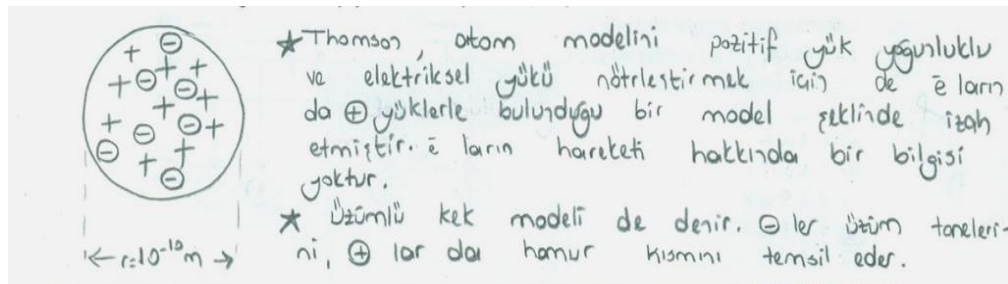 ★ Thomson, atom modelini pozitif yük yoğunluklu
ve elektriksel yükü nötrleştirmek için de ē ların
da ⊕ yüklerle bulunduğu bir model şeklinde izah
etmiştir. ē ların hareketi hakkında bir bilgisi
yoktur.
★ Üzümlü kek modeli de denir. ⊖ ler üzüm taneleri-
ni, ⊕ lar da hamur kısmını temsil eder.
r=10⁻¹⁰ m